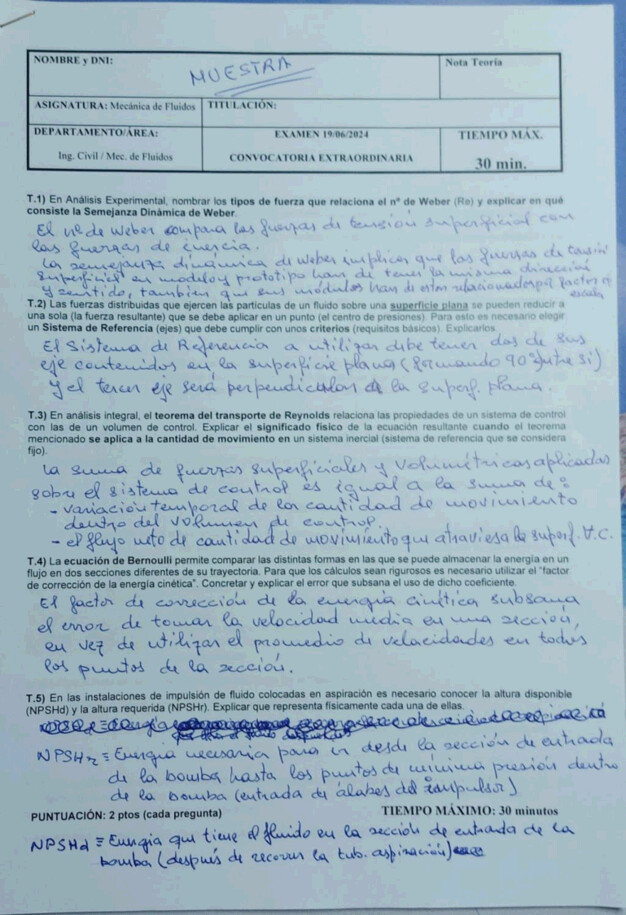 NOMBRE y DNI:
MUESTRA
Nota Teoría
ASIGNATURA: Mecánica de Fluidos
TITULACIÓN:
DEPARTAMENTO/ÁREA:
EXAMEN 19/06/2024
TIEMPO MÁX.
Ing. Civil / Mec. de Fluidos
CONVOCATORIA EXTRAORDINARIA
30 min.
T.1) En Análisis Experimental, nombrar los tipos de fuerza que relaciona el nº de Weber (Re) y explicar en qué
consiste la Semejanza Dinámica de Weber.
El nº de Weber compara las fuerzas de tensión superficial con
las fuerzas de inercia.
La semejanza dinámica de Weber implica que las fuerzas de tensión
superficial en modelo y prototipo han de tener la misma dirección
y sentido, también que sus módulos han de estar relacionados por factor de
escala
T.2) Las fuerzas distribuidas que ejercen las partículas de un fluido sobre una superficie plana se pueden reducir a
una sola (la fuerza resultante) que se debe aplicar en un punto (el centro de presiones). Para esto es necesario elegir
un Sistema de Referencia (ejes) que debe cumplir con unos criterios (requisitos básicos). Explicarlos.
El Sistema de Referencia a utilizar debe tener dos de sus
eje contenidos en la superficie plana (formando 90º entre si)
y el tercer eje será perpendicular a la superf. plana.
T.3) En análisis integral, el teorema del transporte de Reynolds relaciona las propiedades de un sistema de control
con las de un volumen de control. Explicar el significado físico de la ecuación resultante cuando el teorema
mencionado se aplica a la cantidad de movimiento en un sistema inercial (sistema de referencia que se considera
fijo).
La suma de fuerzas superficiales y volumétricas aplicadas
sobre el sistema de control es igual a la suma de:
- variación temporal de la cantidad de movimiento
dentro del volumen de control
- el flujo neto de cantidad de movimiento que atraviesa la superf. V.C.
T.4) La ecuación de Bernoulli permite comparar las distintas formas en las que se puede almacenar la energía en un
flujo en dos secciones diferentes de su trayectoria. Para que los cálculos sean rigurosos es necesario utilizar el "factor
de corrección de la energía cinética". Concretar y explicar el error que subsana el uso de dicho coeficiente.
El factor de corrección de la energía cinética subsana
el error de tomar la velocidad media en una sección,
en vez de utilizar el promedio de velocidades en todos
los puntos de la sección.
T.5) En las instalaciones de impulsión de fluido colocadas en aspiración es necesario conocer la altura disponible
(NPSHd) y la altura requerida (NPSHr). Explicar que representa físicamente cada una de ellas.
NPSHr ≡ Energía necesaria para ir desde la sección de entrada
de la bomba hasta los puntos de mínima presión dentro
de la bomba (entrada de álabes del impulsor)
PUNTUACIÓN: 2 ptos (cada pregunta)
TIEMPO MÁXIMO: 30 minutos
NPSHd ≡ Energía que tiene el fluido en la sección de entrada de la
bomba (después de recorrer la tub. aspiración)